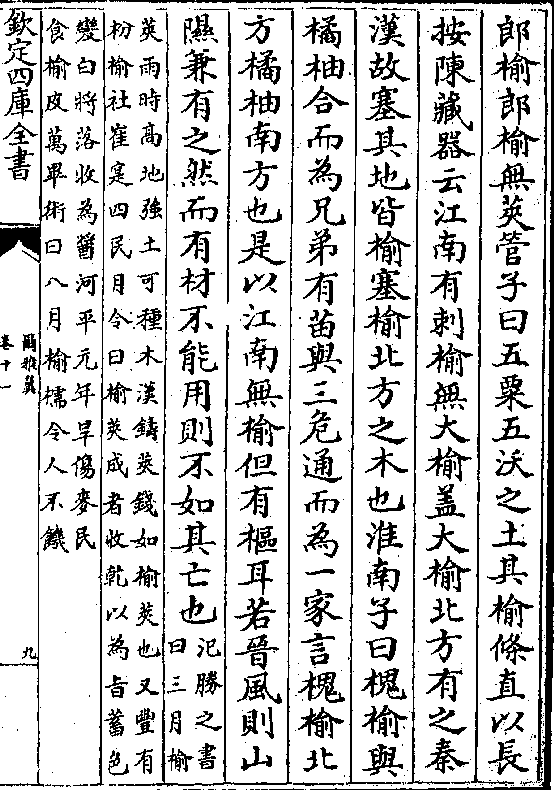 郎榆郎榆無莢管子曰五粟五沃之土其榆條直以長
按陳藏器云江南有刺榆無大榆盖大榆北方有之秦
漢故塞其地皆榆塞榆北方之木也淮南子曰槐榆與
橘柚合而為兄弟有苗與三危通而為一家言槐榆北
方橘柚南方也是以江南無榆但有樞耳若晉風則山
隰兼有之然而有材不能用則不如其亡也
氾勝之書
曰三月榆
莢雨時高地強土可種木漢鑄莢錢如榆莢也又豐有
枌榆社崔寔四民月令曰榆莢成者收乾以為旨蓄色
變白將落收為醬河平元年旱傷麥民
食榆皮萬畢術曰八月榆檽令人不饑
欽定四庫全書
爾雅翼
卷十一
九